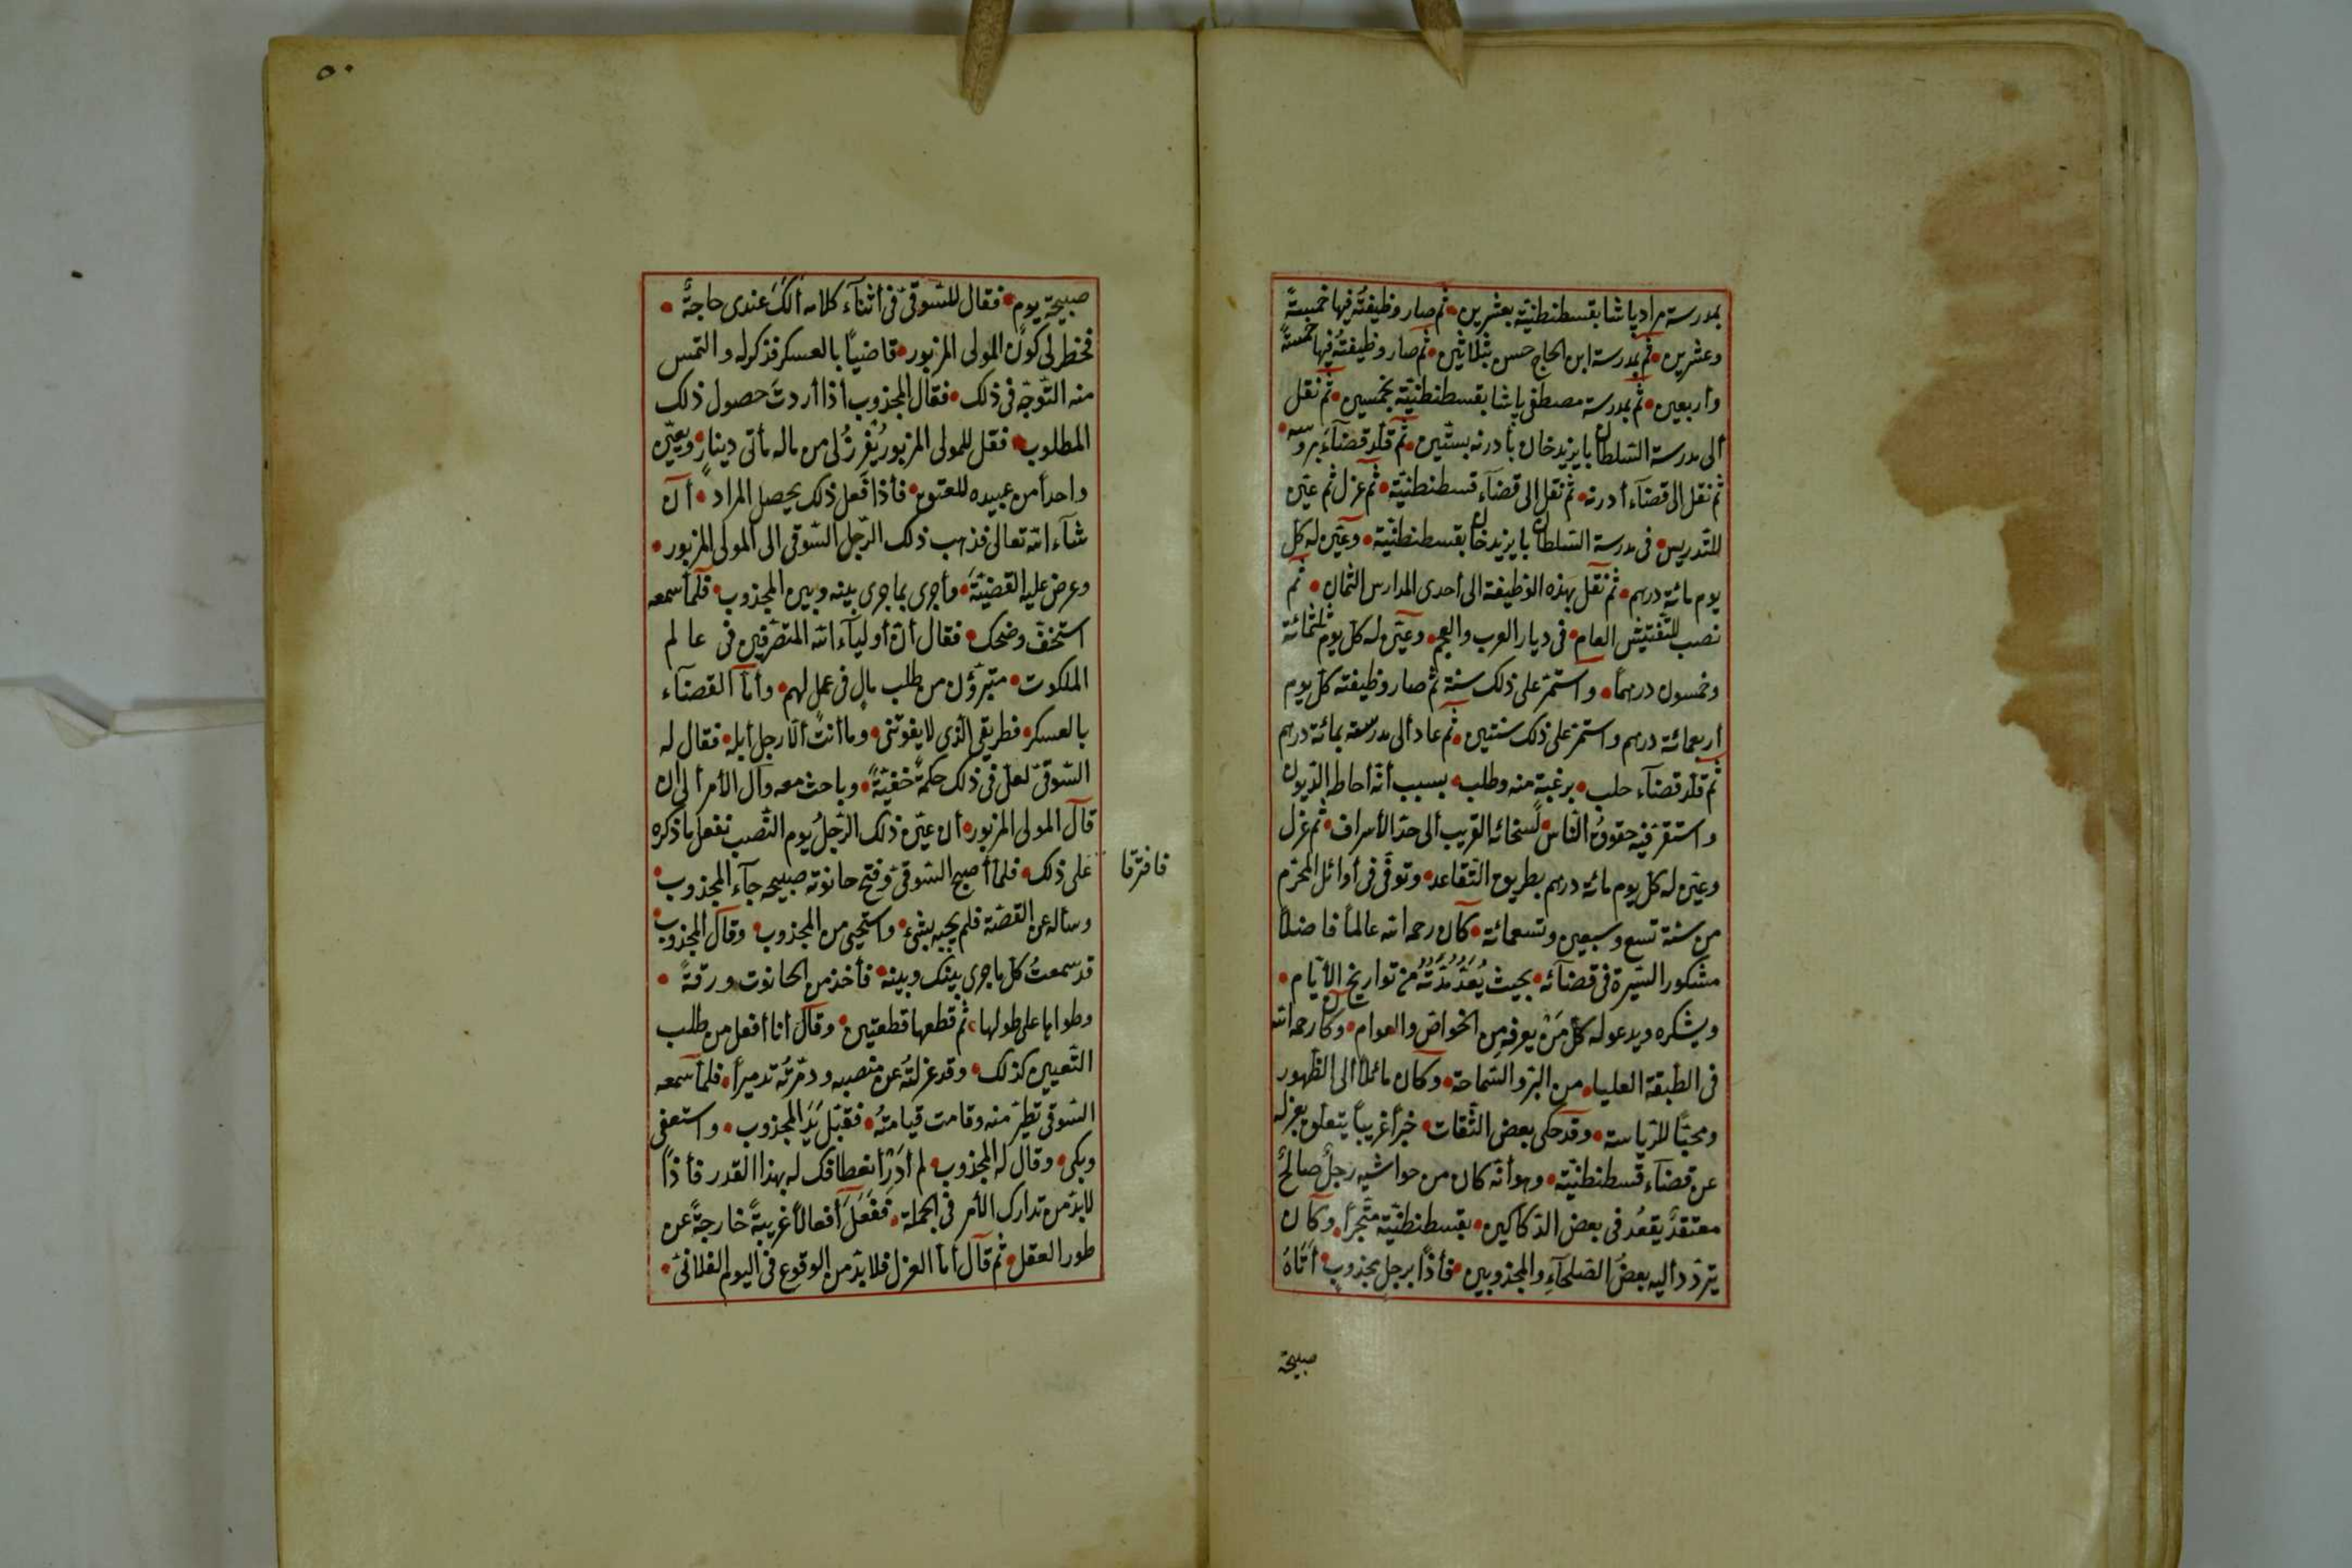 بمدرسة مراد پاشا بقسطنطنية بعشرين • ثم صار وظيفتُه فيها خمسةً
وعشرين • ثم بمدرسة ابن الحاج حسن بثلاثين • ثم صار وظيفتُه فيها خمسةً
وأربعين • ثم بمدرسة مصطفى پاشا بقسطنطنيّة بخمسين • ثم نقل
ألى مدرسة السّلطان بايزيد خان بأدرنه بستّين • ثم قلّد قضآءَ بروسه •
ثم نقل الى قضآء أدرنه • ثم نقل إلى قضآء قسطنطنيّة • ثم عزل ثم عيّن
للتّدريس • فى مدرسة السّلطان بايزيد خان بقسطنطنيّة • وعيّن له كل
يوم مائة درهم • ثم نقل بهذه الوظيفة الى أحدى المدارس الثّمان • ثم
نصب للتّفتيش العام • فى ديار العرب والعجم • وعيّن له كل يوم ثلثمائة
وخمسون درهماً • واستمرّ على ذلك سنة ثم صار وظيفته كلّ يوم
أربعمائة درهم واستمرّ على ذلك سنتين • ثم عاد ألى مدرسة بمائة درهم
ثم قلّد قضآء حلب • برغبة منه وطلب • بسبب أنّه أحاط الدّيون
واستغرقيه حقوقُ النّاس • لسخائه القريب ألى حدّ الأسراف • ثم عزل
وعيّن له كل يوم مائة درهم بطريق التّقاعد • وتوفّى فى أوائل المحرّم
من سنة تسع وسبعين وتسعمائة • كان رحمه الله عالماً فاضلاً
مشكور السّيرة فى قضآئه • بحيث يُعَدّ مُدّتُه من تواريخ الأيّام •
ويشكره ويدعو له كلّ مَنْ يعرفه من الخواصّ والعوام • وكان رحمه الله
فى الطّبقة العليا • من البرّ والسّماحة • وكان مائلاً الى الظّهور
ومحبّاً للرّياسة • وقد حكى بعض الثّقات • خبراً غريباً يتعلّق بعزله
عن قضآء قسطنطنيّة • وهو أنّه كان من حواشيه رجلٌ صالحٌ
معتقدٌ يقعُد فى بعض الدّكاكين • بقسطنطنيّة متّجراً • وكان
يتردّد أليه بعضُ الصّلحآءِ والمجذوبين • فأذاً برجل مجذوبٍ • أتاهُ
صبيحة
٥٠
صبيحة يوم • فقال للسّوقىّ فى أثنآء كلامه ألكَ عندى حاجةٌ •
فخطر لى كون المولى المزبور • قاضياً بالعسكر فذكر له والتمس
منه التّوجّه فى ذلك • فقال المجذوب أذا أردتَ حصول ذلك
المطلوب • فقل للمولى المزبور يُفرزْ لى من ماله مأتى دينارٍ • ويعيّن
واحداً من عبيده للعتق • فأذا فعل ذلك يحصل المراد • أن
شآء الله تعالى فذهب ذلك الرّجل السّوقى الى المولى المزبور •
وعرض عليه القضيّةَ • وأجرى بماجرى بينه وبين المجذوب • فلمّا سمعه
استخفّ وضحك • فقال أنّ أوليآء الله المتصرّفين فى عالم
الملكوت • متبرّؤن من طلب مالٍ فى عمل لهم • وأمّا القضآء
بالعسكر • فطريقى الّذى لا يفوتنى • وما أنت ألّا رجل أبله • فقال له
السّوقىّ لعلّ فى ذلك حكمةً خفيّةً • وباحث معه وآل الأمر ألى ان
قال المولى المزبور • أن عيّن ذلك الرّجلُ يوم النّصب نفعل ما ذكره
فافترقا
على ذلك • فلمّا أصبح السّوقىّ وفتح حانوته صبيحه جآء المجذوب •
وسأله عن القصّة فلم يجبه بشىء • واستحيى من المجذوب • وقال المجذوب
قد سمعتُ كلّ ما جرى بينك وبينه • فأخذ من الحانوت ورقةً •
وطواها على طولها • ثم قطعها قطعتين • وقال أنا أفعل من طلب
التّعيين كذلك • وقد عزلتُه عن منصبه ودمّرتُه تدميراً • فلمّا سمعه
السّوقى تطيّر منه وقامت قيامتهُ • فقبّل يدَ المجذوب • واستعفى
وبكى • وقال له المجذوب • لم أدرِ أنعطافك له بهذا القدر فأذاً
لا بدّ من تدارك الأمر فى الجملة • ففعلَ أفعالاً غريبةً خارجةً عن
طور العقل • ثم قال أمّا العزل فلا بدّ من الوقوع فى اليوم الفلانىّ •